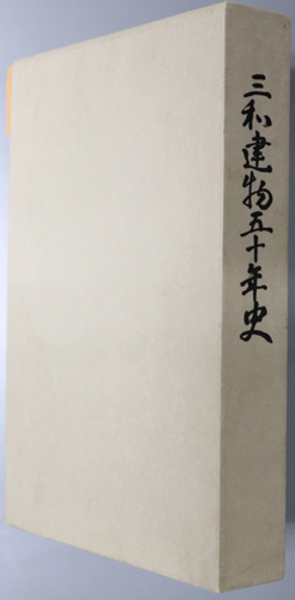 三和建物五十年史